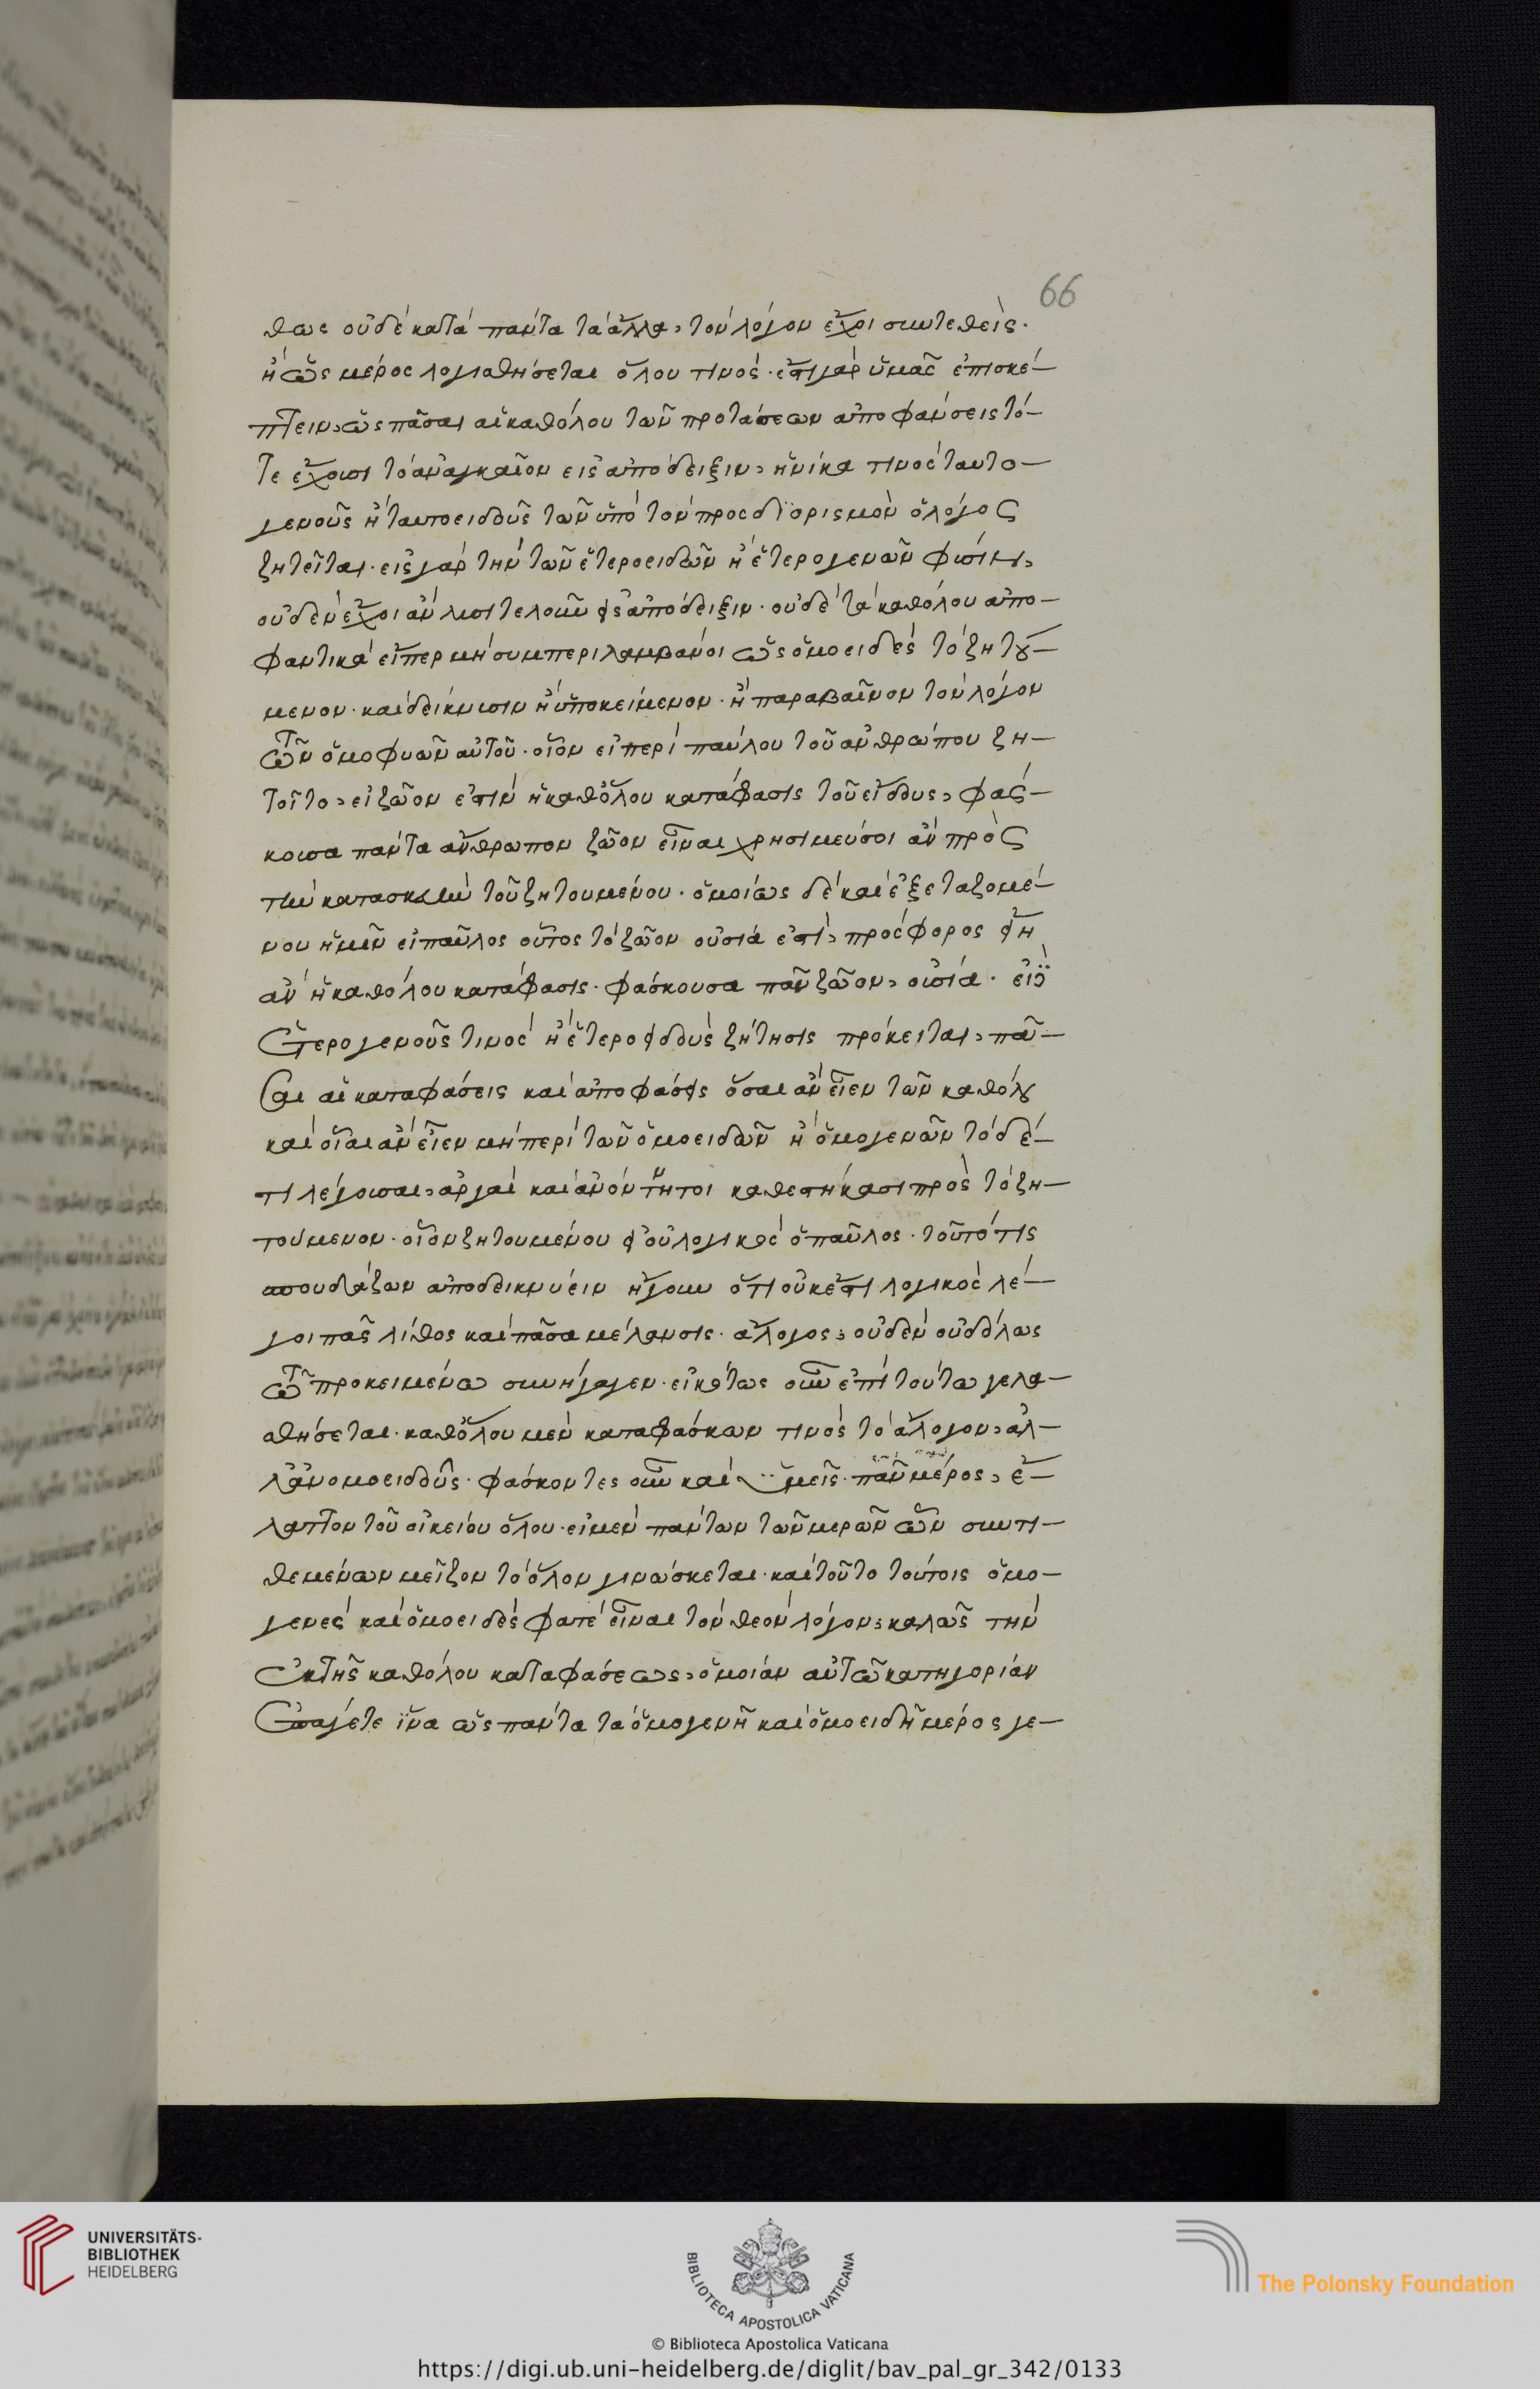 66
θως οὐδὲ κατὰ πάντα τὰ ἄλλα, τὸν λόγον ἔχοι συντεθείς.
ἢ ὡς μέρος λογισθήσεται ὅλου τινός. ἔστι γὰρ ὑμᾶς ἐπισκέ-
πτειν, ὡς πᾶσαι αἱ καθόλου τῶν προτάσεων ἀποφάνσεις τό-
τε ἔχουσι τὸ ἀναγκαῖον εἰς ἀπόδειξιν, ἡνίκα τινὸς ταυτο-
γενοῦς ἢ ταυτοειδοῦς τῶν ὑπὸ τὸν προσδιορισμὸν ὁ λόγος
ζητεῖται. εἰς γὰρ τὴν τῶν ἑτεροειδῶν ἢ ἑτερογενῶν φύσιν,
οὐδὲν ἔχοι ἂν λυσιτελοῦν εἰς ἀπόδειξιν. οὐδὲ τὰ καθόλου ἀπο-
φαντικὰ εἴπερ μὴ συμπεριλαμβάνοι ὡς ὁμοειδὲς τὸ ζητού-
μενον. καὶ δείκνυσιν ἢ ὑποκείμενον. ἢ παραβαῖνον τὸν λόγον
τῶν ὁμοφυῶν αὐτοῦ. οἷον εἰ περὶ παύλου τοῦ ἀνθρώπου ζη-
τοῖτο, εἰ ζῶον ἐστὶν ἡ καθόλου κατάφασις τοῦ εἴδους, φάς-
κουσα πάντα ἄνθρωπον ζῶον εἶναι χρησιμεύσοι ἂν πρὸς
τὴν κατασκευὴν τοῦ ζητουμένου. ὁμοίως δὲ καὶ ἐξεταζομέ-
νου ἡμῖν εἰ παῦλος οὗτος τὸ ζῶον οὐσία ἐστί, πρόσφορος εἴη
ἂν ἡ καθόλου κατάφασις. φάσκουσα πᾶν ζῶον, οὐσία. εἰ δ
ἑτερογενοῦς τινὸς ἢ ἑτεροειδοῦς ζήτησις πρόκειται, πᾶ-
σαι αἱ καταφάσεις καὶ ἀποφάσεις ὅσαι ἂν εἶεν τῶν καθόλου
καὶ οἷαι ἂν εἶεν μὴ περὶ τῶν ὁμοειδῶν ἢ ὁμογενῶν τόδέ-
τι λέγουσαι, ἀργαὶ καὶ ἀνόνητοι καθεστήκασι πρὸς τὸ ζη-
τούμενον. οἷον ζητουμένου εἰ οὐ λογικὸς ὁ παῦλος. τοῦτό τις
σπουδάζων ἀποδεικνύειν ἤγουν ὅτι οὐκ ἔστι λογικὸς λέ-
γοι πᾶς λίθος καὶ πᾶσα μέλανσις. ἄλογος, οὐδὲν οὐδόλως
τῷ προκειμένω συνήγαγεν. εἰκότως οὖν ἐπὶ τούτω γελα-
σθήσεται. καθόλου μὲν καταφάσκων τινὸς τὸ ἄλογον, ἀλ-
λ' ἀνομοειδοῦς. φάσκοντες οὖν καὶ ὑμεῖς. πᾶν μέρος, ἔ-
λαττον τοῦ οἰκείου ὅλου. εἰ μὲν πάντων τῶν μερῶν ὧν συντι-
θεμένων μεῖζον τὸ ὅλον γινώσκεται. καὶ τοῦτο τούτοις ὁμο-
γενὲς καὶ ὁμοειδὲς φατὲ εἶναι τὸν θεὸν λόγον, καλῶς τὴν
ἐκ τῆς καθόλου καταφάσεως, ὁμοίαν αὐτῷ κατηγορίαν
ἐπαγέτε ἵνα ὡς πάντα τὰ ὁμογενῆ καὶ ὁμοειδῆ μέρος γε-
UNIVERSITÄTS-
BIBLIOTHEK
HEIDELBERG
BIBLIOTECA APOSTOLICA VATICANA
The Polonsky Foundation
© Biblioteca Apostolica Vaticana
https://digi.ub.uni-heidelberg.de/diglit/bav_pal_gr_342/0133